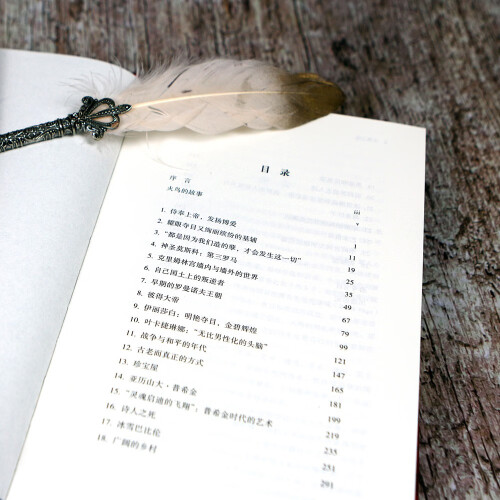 目 录
序 言 iii
火鸟的故事 v
1. 侍奉上帝，发扬博爱 1
2. 耀眼夺目又缤纷的基辅 11
3. “都是因为我们造的孽，才会发生这一切” 19
4. 神圣莫斯科：第三罗马 25
5. 克里姆林宫墙内与墙外的世界 35
6. 自己国土上的叛逆者 49
7. 早期的罗曼诺夫王朝 67
8. 彼得大帝 79
9. 伊丽莎白：明艳夺目，金碧辉煌 99
10. 叶卡捷琳娜：“无比男性化的头脑” 121
11. 战争与和平的年代 147
12. 古老而真正的方式 165
13. 珍宝屋 181
14. 亚历山大·普希金 199
15. “灵魂启迪的飞翔”：普希金时代的艺术 219
16. 诗人之死 235
17. 冰雪巴比伦 251
18. 广阔的乡村 291